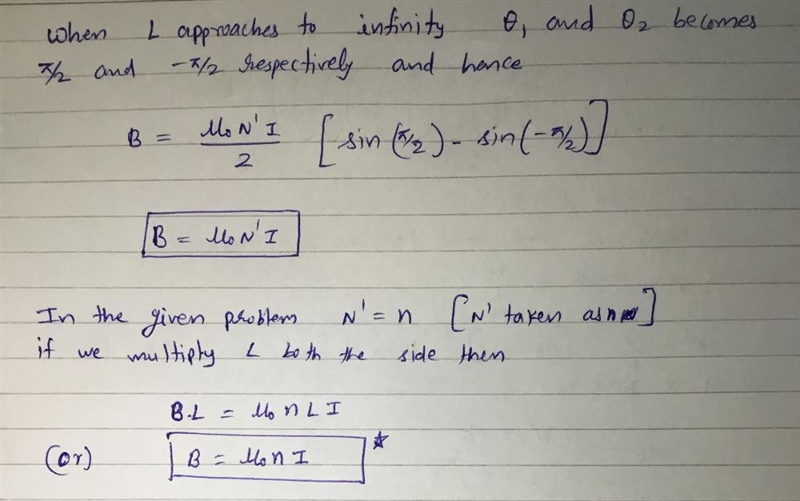 When L approaches to infinity θ₁ and θ₂ becomes
π/2 and -π/2 respectively and hence
B = μ₀N'I/2 [sin(π/2) - sin(-π/2)]
B = μ₀N'I
In the given problem N' = n [N' taken as n]
if we multiply L both the side then
B.L = μ₀ n L I
(or) B = μ₀ n I *